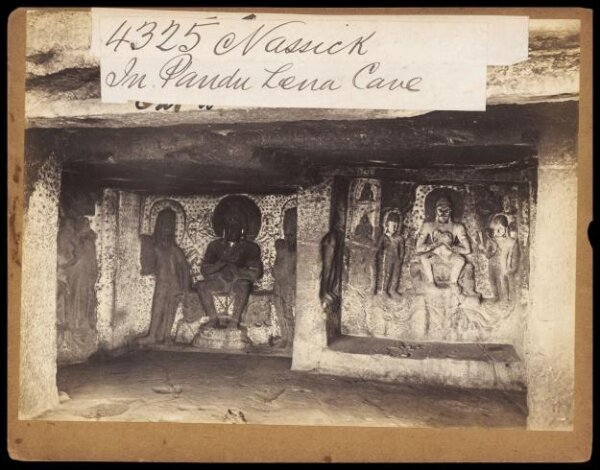 4325 Nassick
In Pandu Lena Cave